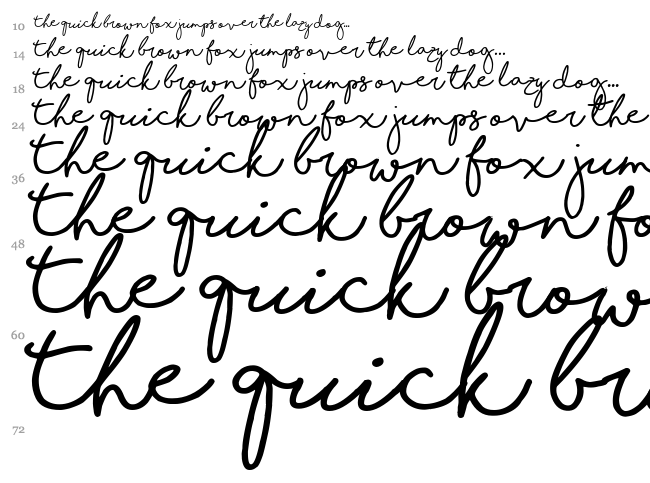 10 the quick brown fox jumps over the lazy dog...
14 the quick brown fox jumps over the lazy dog...
18 the quick brown fox jumps over the lazy dog...
24 the quick brown fox jumps over the
36 the quick brown fox jum
48 the quick brown fo
60 the quick brow
72 the quick br